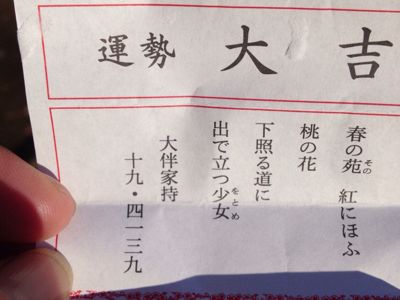 運勢 大吉
春の苑その 紅にほふ
桃の花
下照る道に
出で立つ少女をとめ
大伴家持
十九・四一三九